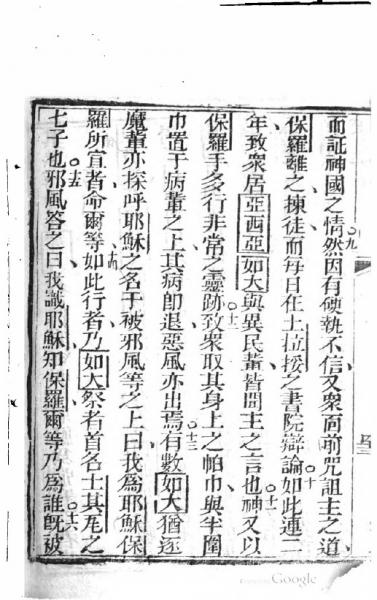 而証神國之情○九然因有硬執不信又衆面前咒詛主之道
保羅離之揀徒而每日在士拉挼之書院辯論○十如此連二
年致衆居亞西亞如大與異民輩皆聞主之言也○十一神又以
保羅手多行非常之靈跡○十二致衆取其身上之帕巾與半圍
巾置于病輩之上其病卽退惡風亦出焉○十三有數如大猶逐
魔輩亦探呼耶穌之名于被邪風等之上曰我爲耶穌保
羅所宣者命爾等○十四如此行者乃如大祭者首名士其瓦之
七子也○十五邪風答之曰我識耶穌知保羅爾等乃爲誰○十六旣被
Google